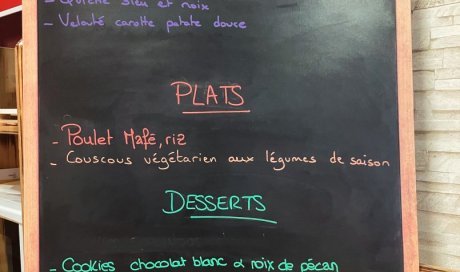 - Quiche bleu et noix
- Velouté carotte patate douce
PLATS
- Poulet Mafé, riz
- Couscous végétarien aux légumes de saison
DESSERTS
- Cookies chocolat blanc & noix de pécan